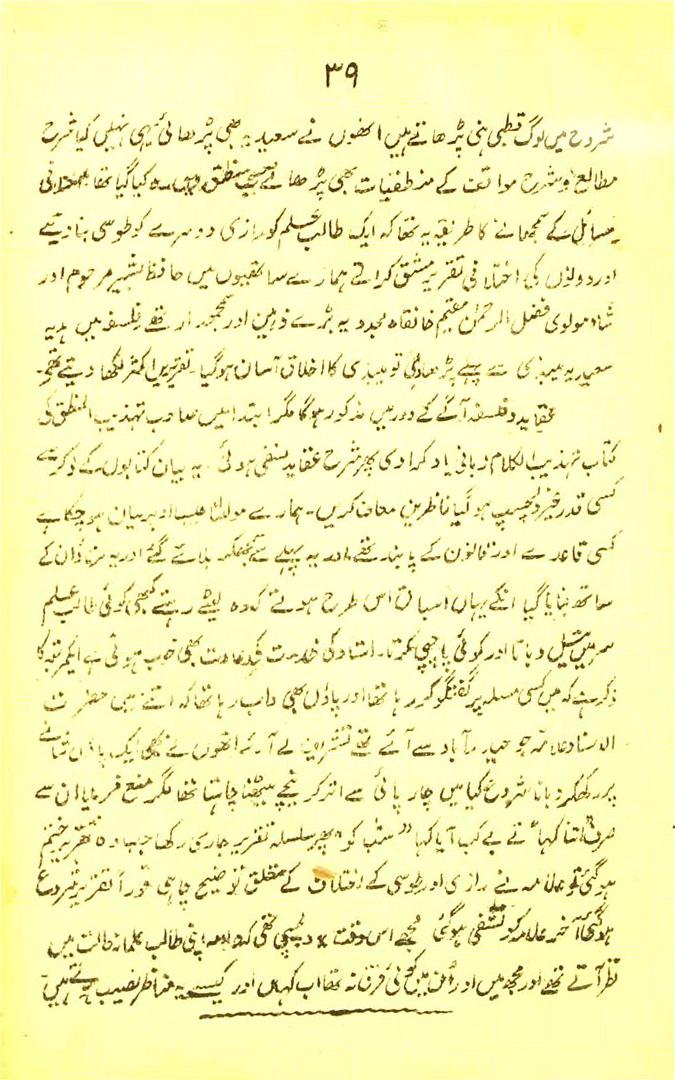 ۳۹
شروح میں لوگ قطبی ہی پڑھاتے ہیں انھوں نے سعیدیہ بھی پڑھائی یہی نہیں کیا شرح
مطالع و شرح مواقف کے منطقیات بھی پڑھائے منطق کیا گیا تھا
مسائل کے سمجھانے کا طریقہ یہ تھا کہ ایک طالب علم کو رازی دوسرے کو طوسی بنا دیتے
اور دونوں کی اختلافی تقریر مشق کراتے ہمارے ساتھیوں میں حافظ بشیر مرحوم اور
شاہ مولوی فضل الرحمان مقیم خانقاہ مجددیہ بڑے ذہین اور سمجھدار تھے فلسفہ میں ہدیہ
سعیدیہ میبذی سے پہلے پڑھا دی تو میبذی کا اخلاق آسان ہوگیا۔ تقریریں اکثر لکھا دیتے تھے۔
عقاید و فلسفہ آگے کے دور میں مذکور ہوگا مگر ابتدا میں صاحب تہذیب المنطق کی
کتاب تہذیب الکلام زبانی یاد کرا دی پھر شرح عقاید نسفی ہوئی۔ یہ بیان کتابوں کے ذکر سے
کسی قدر غیر دلچسپ ہو گیا ناظرین معاف کریں۔ ہمارے مولانا اوپر بیان ہو چکا ہے
کسی قاعدے اور قانون کے پابند تھے اور یہ پہلے سے بلائے گئے اور یہ ان کے
ساتھ بنایا گیا انکے یہاں اسباق اس طرح ہوتے کہ وہ لیٹے رہتے کبھی کوئی طالب علم
سر میں تیل دباتا اور کوئی پا چپی کرتا۔ استاد کی خدمت کی عادت بھی خوب ہوتی ہے ایکمرتبہ کا
ذکر ہے کہ میں کسی مسلہ پر گفتگو کر رہا تھا اور پاؤں بھی داب رہا تھا کہ اتنے میں حضرت
الاستاد علامہ جو حیدرآباد سے آئے تھے تشریف لے آئے انھوں نے بھی ایک پاؤں شانے
پر رکھکر دبانا شروع کیا میں چارپائی سے اتر کر نیچے بیٹھنا چاہتا تھا مگر منع فرمایا ان سے
صرف اتنا کہا "تے بے کب آیا کہا "شب کو" پھر سلسلہ تقریر جاری رکھا جب وہ تقریر ختم
ہو گئی تو علامہ نے رازی اور طوسی کے اختلاف کے متعلق توضیح چاہی فوراً تقریر شروع
ہوگئی آخر علامہ کو تشفی ہوگئی مجھے اس وقت دلچسپی تھی کہ علامہ اپنی طالب علمانہ حالت میں
نظر آتے تھے اور مجھ میں اور ان میں کوئی فرق نہ تھا اب کہاں اور کیسے یہ مناظر نصیب ہوتے ہیں۔